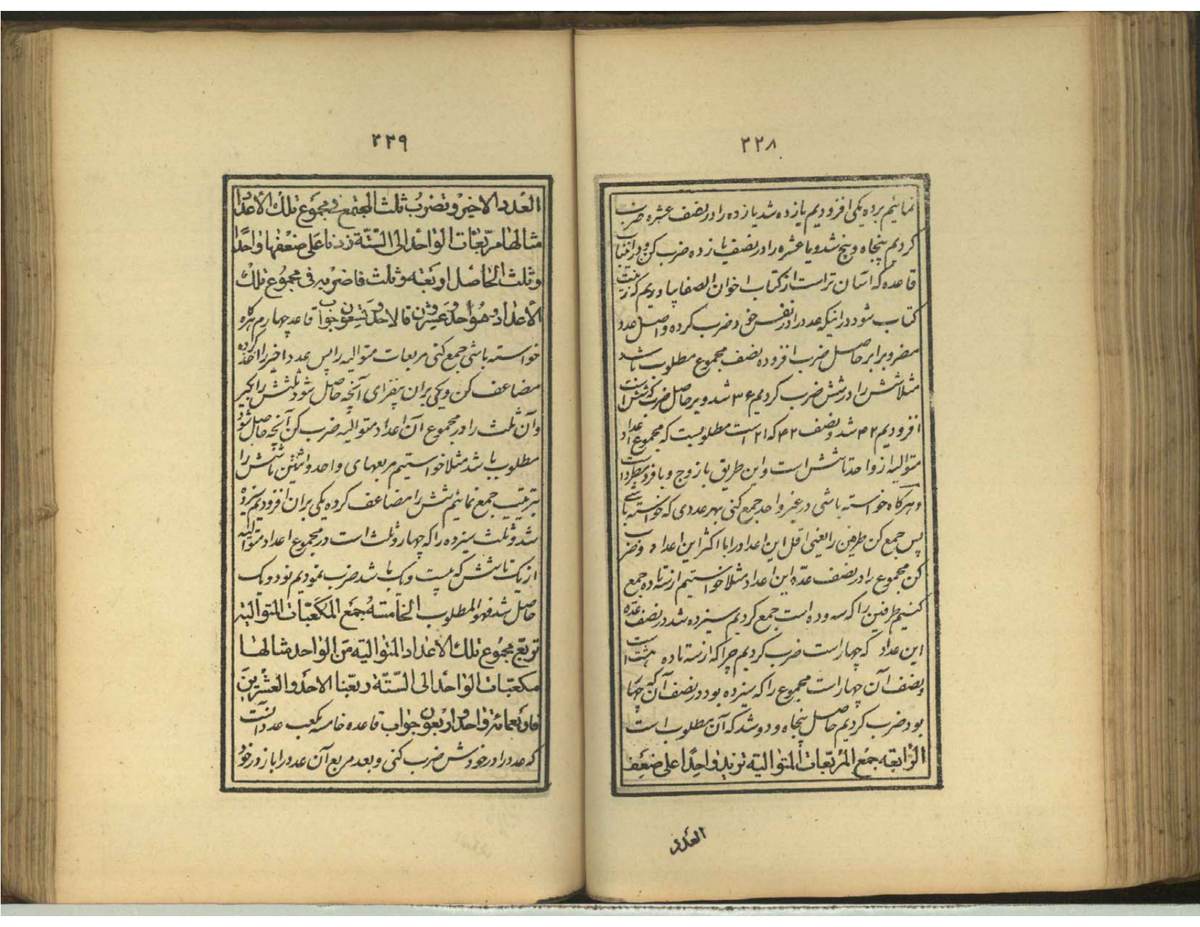 ٢٢٨
نمائیم برده یکی افزودیم یازده شد یازده را در نصف عشره ضرب
کردیم پنجاه و پنج شد و یا عشره را در نصف یازده ضرب کن و در
قاعده که آسان تر است از کتاب اخوان الصفا بیاوریم که
کتاب شود در اینکه عدد را در نفس خود ضرب کرده و اصل عدد
مضروب را بر حاصل ضرب افزوده نصف مجموع مطلوب باشد
مثلا شش را در شش ضرب کردیم ٣۶ شد و بر حاصل ضرب که شش است
افزودیم ۴٢ شد و نصف ۴٢ که ٢١ است مطلوبست که مجموع اعداد
متوالیه از واحد تا شش است و این طریق با زوج و با فرد
و هر گاه خواسته باشی در غیر واحد جمع کنی بهر عددی که خواسته باشی
پس جمع کن طرفین را یعنی اقل این اعداد را با اکثر این اعداد و ضرب
کن مجموع را در نصف عدّه این اعداد مثلا خواستیم از سه تا ده جمع
کنیم طرفین را که سه و ده است جمع کردیم سیزده شد در نصف عدّه
این عداد که چهار است ضرب کردیم چرا که از سه تا ده هشت است
و نصف آن چهار است مجموع را که سیزده بود در نصف آن که چهار
بود ضرب کردیم حاصل پنجاه و دو شد که آن مطلوب است
الرّابعة جمع المربّعات المتوالیة تزید واحدًا علی ضعف
العدد
٢٢٩
العدد الاخیر و تضرب ثلث المجتمع فی مجموع تلک الأعداد
مثالها مربّعات الواحد الی السّتة زدنا علی ضعفها واحدًا
و ثلث الحاصل اربعة و ثلث فاضربه فی مجموع تلک
الأعداد و هو احد و عشرون فالاحد و تسعون جواب قاعده چهارم هر گاه
خواسته باشی جمع کنی مربعات متوالیه را پس عدد اخیر را اخذ کرده
مضاعف کن و یکی بر آن بیفزای آنچه حاصل شود ثلثش را بگیر
و آن ثلث را در مجموع آن اعداد متوالیه ضرب کن آنچه حاصل شود
مطلوب باشد مثلا خواستیم مربعهای واحد و اثنین تا شش را
بترتیب جمع نمائیم شش را مضاعف کرده یکی بر آن افزودیم سیزده
شد و ثلث سیزده را که چهار و ثلث است در مجموع اعداد متوالیه
از یک تا شش که بیست و یک باشد ضرب نمودیم نود و یک
حاصل شد فهو المطلوب الخامسة جمع المکعّبات المتوالیة
تربّع مجموع تلک الأعداد المتوالیة من الواحد مثالها
مکعبات الواحد الی السّتة ربّعنا الاحد و العشرین
فاربعمائة و احد و اربعون جواب قاعده خامسه مکعب عدد آنست
که عدد را در خودش ضرب کنی و بعد مربع آن عدد را باز در خود